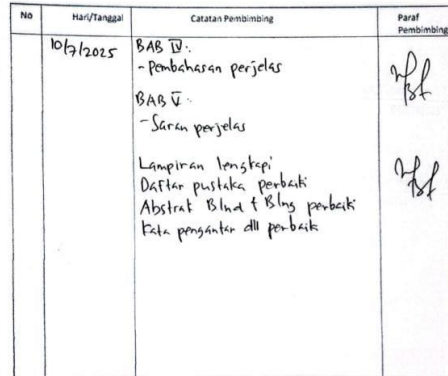 No Hari/Tanggal Catatan Pembimbing Paraf Pembimbing
10/7/2025 BAB IV :
- Pembahasan perjelas
BAB V :
- Saran perjelas
Lampiran lengkapi
Daftar pustaka perbaiki
Abstrak BInd + BIng perbaiki
Kata pengantar dll perbaiki